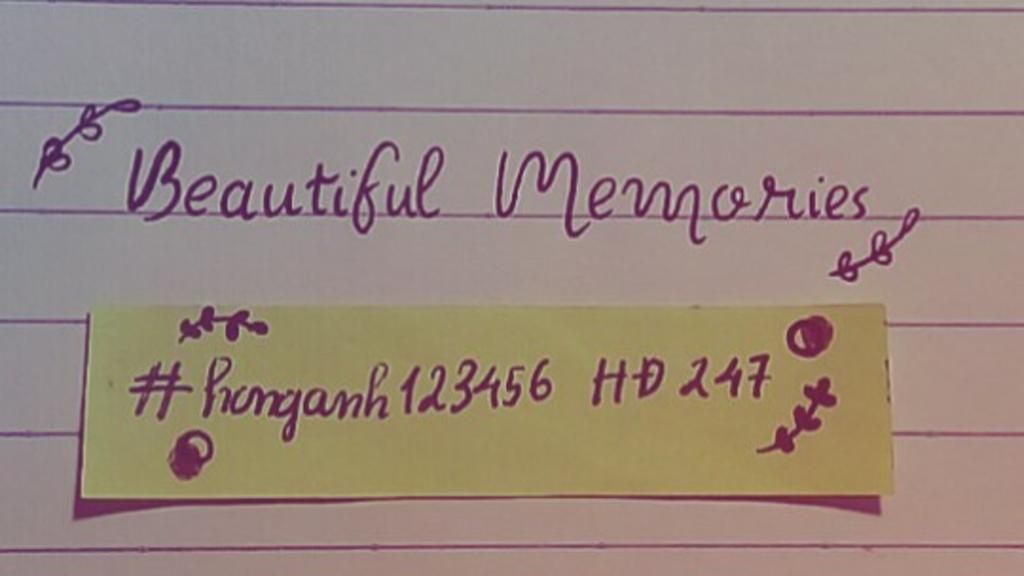 Beautiful Memories
#honganh123456 HĐ 247